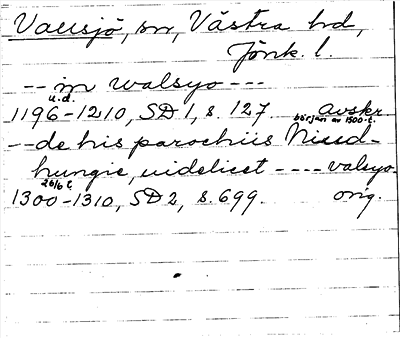 Vallsjö, sn, Västra hd,
Jönk. l.
-- in walsyo ---
u.d.
1196-1210, SD 1, s. 127 avskr.
början av 1500-t.
-- de his parochiis Niud-
hungie, uidelicet ---- valsyo.
26/6 ?
1300-1310, SD 2, s. 699. orig.